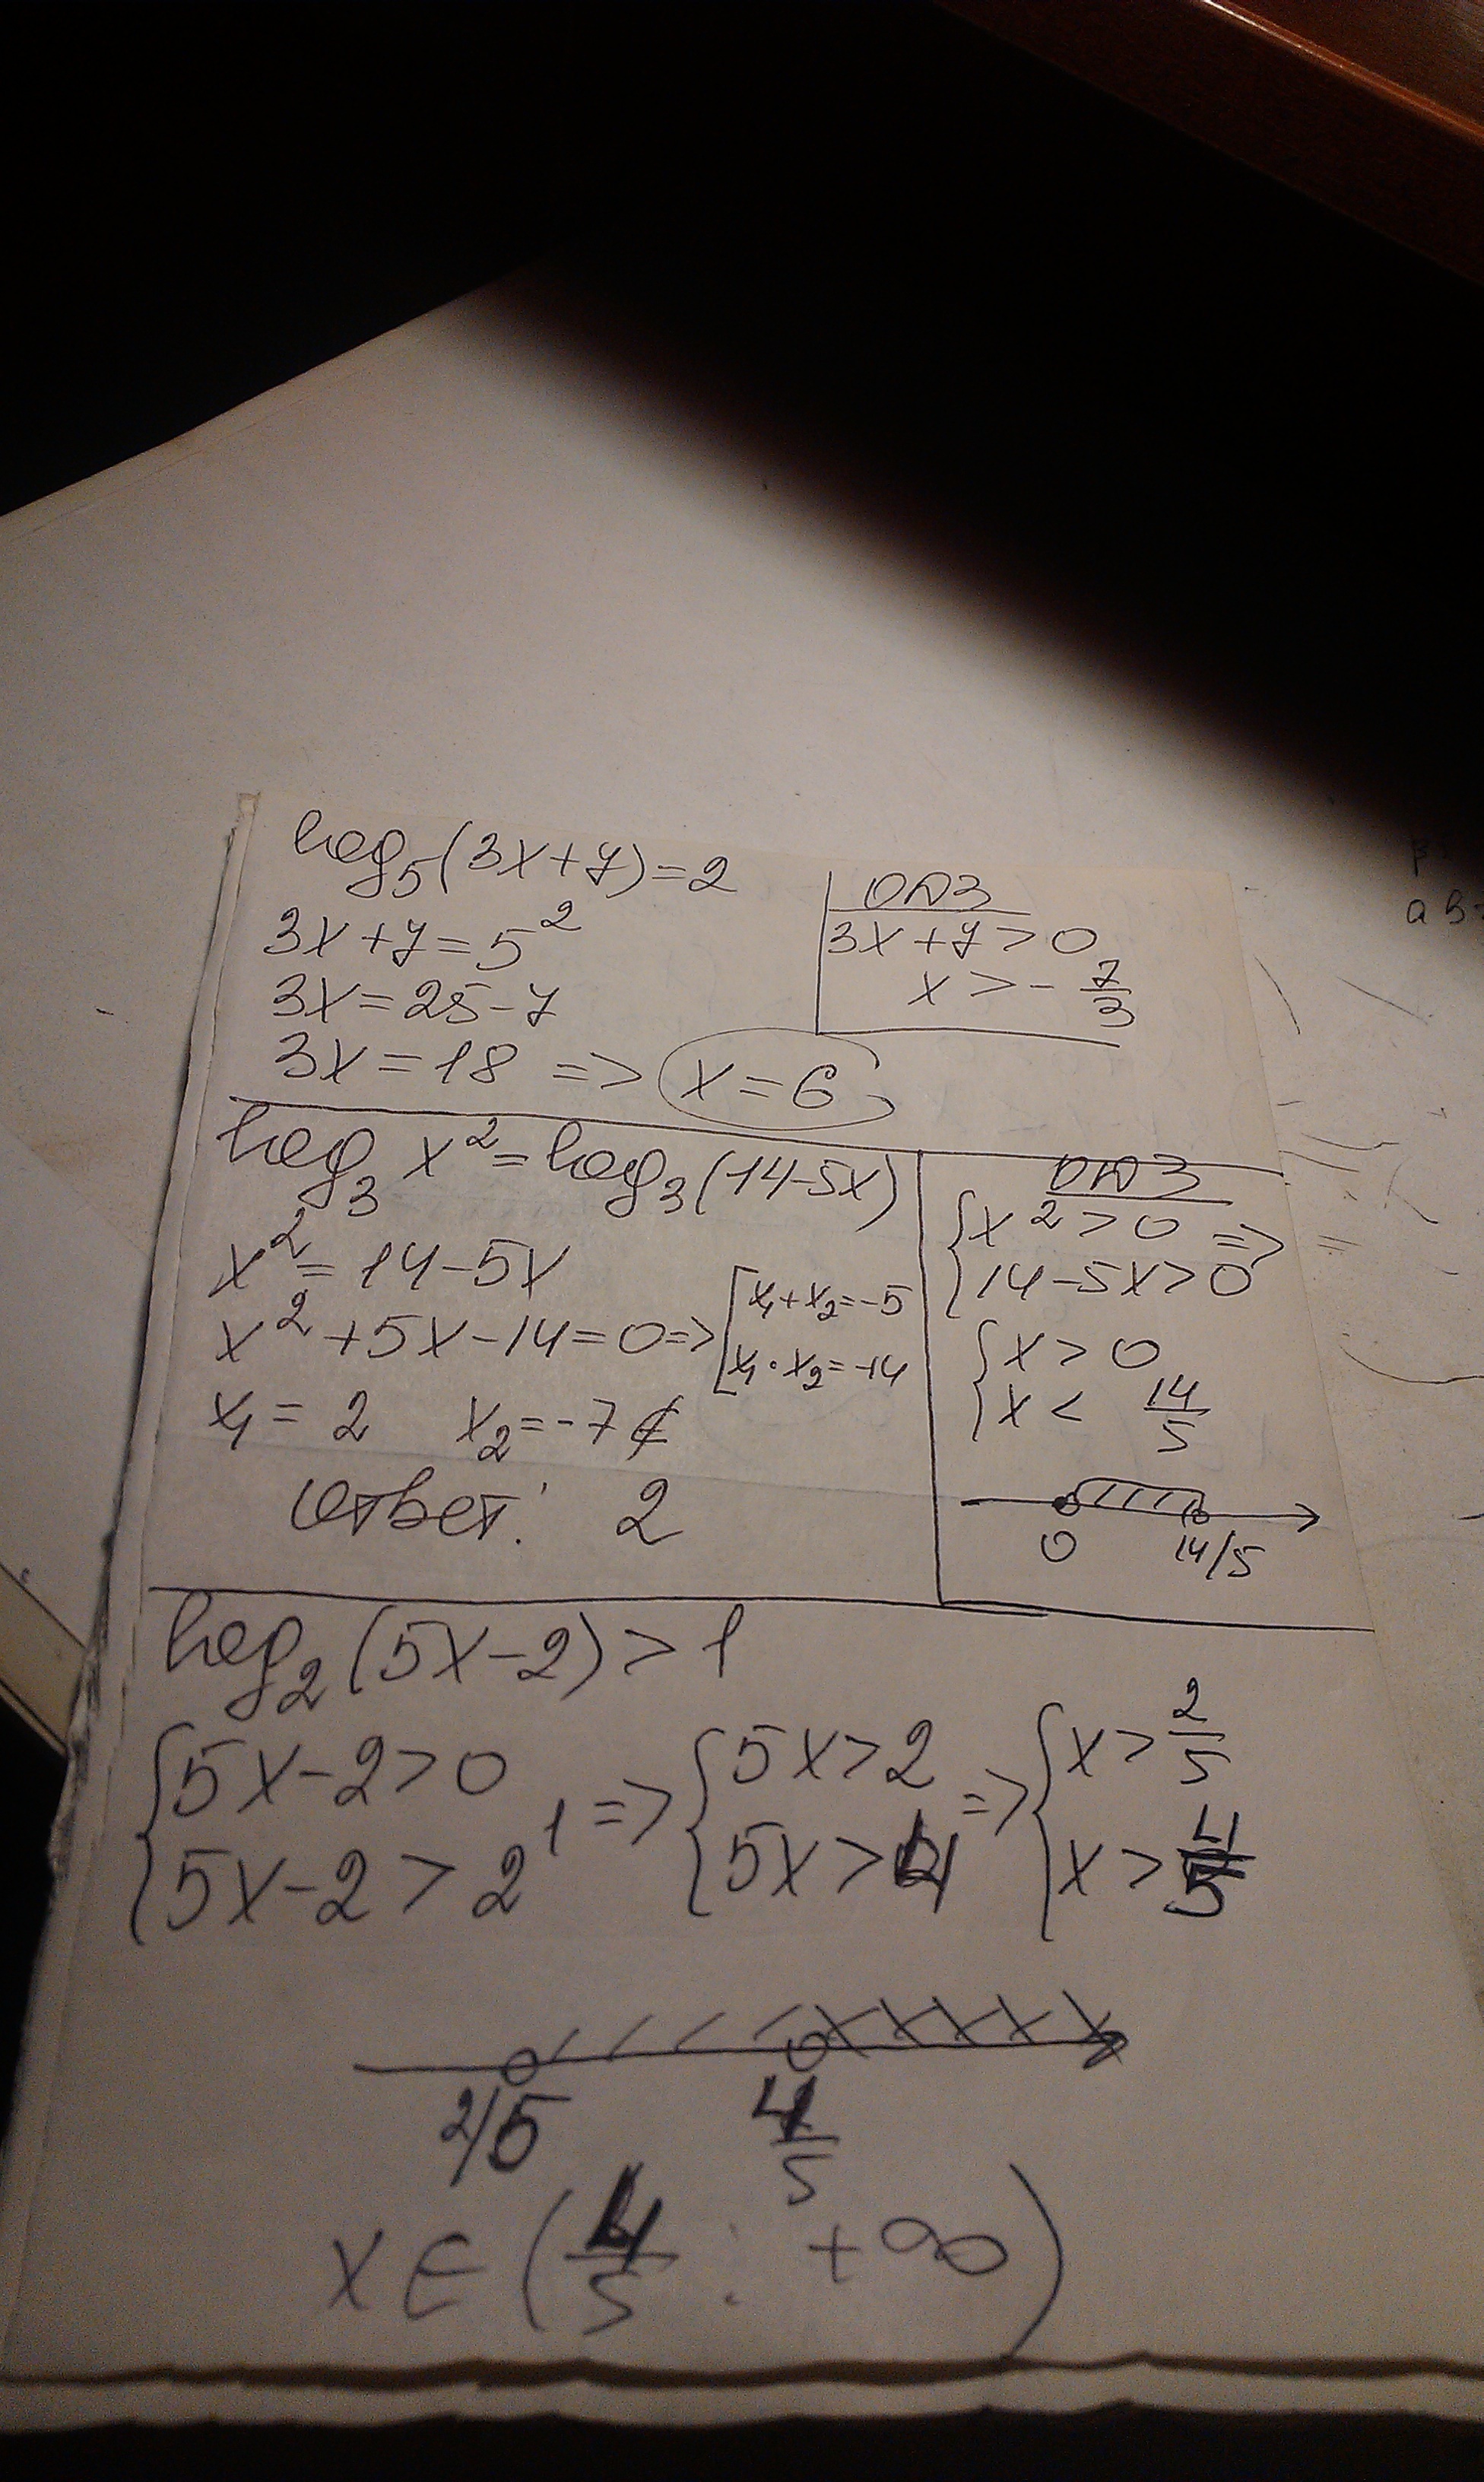 log₅(3x+7)=2
3x+7=5²
3x=25-7
3x=18 => x=6
ОДЗ
3x+7>0
x>-7/3
log₃ x²=log₃(14-5x)
x²=14-5x
x²+5x-14=0=> [x₁+x₂=-5
x₁·x₂=-14
x₁=2 x₂=-7 ∉
Ответ: 2
ОДЗ
{x²>0 =>
14-5x>0
{x>0
x< 14/5
0 14/5
log₂(5x-2)>1
{5x-2>0 => {5x>2 => {x>2/5
5x-2>2¹ 5x>4 x>4/5
2/5 4/5
x∈(4/5; +∞)